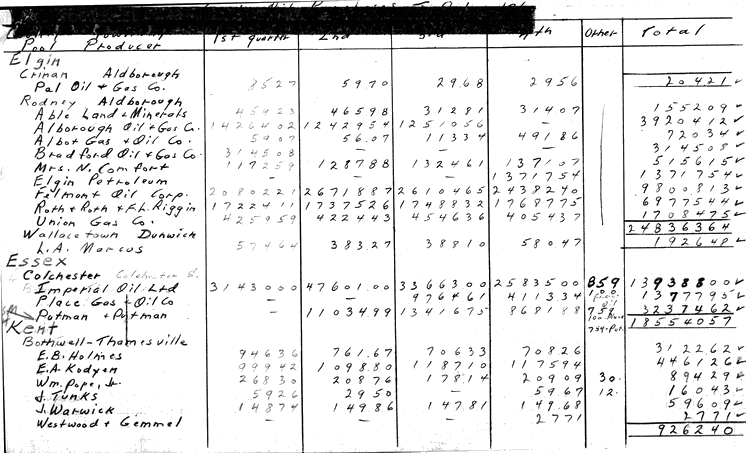 Pool Producer 1st quarter 2nd 3rd 4th Other Total
Elgin
Crinan Aldborough
Pal Oil + Gas Co. 8527 59.70 29.68 2956 20421
Rodney Aldborough
Able Land + Minerals 45923 46598 31281 31407 155209
Alborough Oil + Gas Co. 1426402 1242954 1251056 — 3920412
Albot Gas + Oil Co. 5907 56.07 11334 49186 72034
Bradford Oil + Gas Co. 314508 — — — 314508
Mrs. N. Comfort 117259 128788 132461 137107 515615
Elgin Petroleum — 1371754 1371754
Felmont Oil Corp. 2080221 2671887 2610465 2438240 9800813
Roth + Roth + F.L. Riggin 1722411 1737526 1748832 1768775 6977544
Union Gas Co. 425959 422443 454636 405437 1708475
24836364
Wallacetown Dunwich
L.A. Marcus 57464 383.27 38810 58047 192648
Essex
Colchester Colchester S.
Imperial Oil Ltd 3143000 47601.00 3366300 2583500 859 13938800
Place Gas + Oil Co — — 976461 411334 100 1377795
Putman + Putman — 1103499 1341675 868188 759 3237462
18554057
Kent
Bothwell-Thamesville
E.B. Holmes 94636 761.67 70633 70826 312262
E.A. Kodyen 99942 1098.80 118710 117594 446126
Wm. Pope, Jr 26830 20876 17814 20909 30. 89429
J. Tunks 5926 2950 — 59.67 12. 16043
J. Warwick 14874 149.86 14781 149.68 59609
Westwood + Gemmel — — — 2771 2771
926240